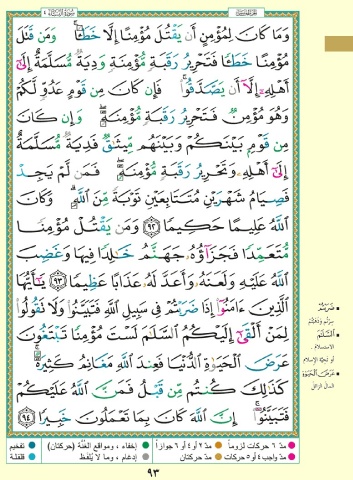 سُورَةُ النِّسَاءِ ٤
الجزء الخامس
وَمَا كَانَ لِمُؤْمِنٍ أَن يَقْتُلَ مُؤْمِنًا إِلَّا خَطَـًٔا ۚ وَمَن قَتَلَ
مُؤْمِنًا خَطَـًٔا فَتَحْرِيرُ رَقَبَةٍ مُّؤْمِنَةٍ وَدِيَةٌ مُّسَلَّمَةٌ إِلَىٰٓ
أَهْلِهِۦٓ إِلَّآ أَن يَصَّدَّقُوا۟ ۚ فَإِن كَانَ مِن قَوْمٍ عَدُوٍّ لَّكُمْ
وَهُوَ مُؤْمِنٌ فَتَحْرِيرُ رَقَبَةٍ مُّؤْمِنَةٍ ۖ وَإِن كَانَ
مِن قَوْمٍۭ بَيْنَكُمْ وَبَيْنَهُم مِّيثَـٰقٌ فَدِيَةٌ مُّسَلَّمَةٌ
إِلَىٰٓ أَهْلِهِۦ وَتَحْرِيرُ رَقَبَةٍ مُّؤْمِنَةٍ ۖ فَمَن لَّمْ يَجِدْ
فَصِيَامُ شَهْرَيْنِ مُتَتَابِعَيْنِ تَوْبَةً مِّنَ ٱللَّهِ ۗ وَكَانَ
ٱللَّهُ عَلِيمًا حَكِيمًا ٩٢ وَمَن يَقْتُلْ مُؤْمِنًا
مُّتَعَمِّدًا فَجَزَآؤُهُۥ جَهَنَّمُ خَـٰلِدًا فِيهَا وَغَضِبَ
ٱللَّهُ عَلَيْهِ وَلَعَنَهُۥ وَأَعَدَّ لَهُۥ عَذَابًا عَظِيمًا ٩٣ يَـٰٓأَيُّهَا
ٱلَّذِينَ ءَامَنُوٓا۟ إِذَا ضَرَبْتُمْ فِى سَبِيلِ ٱللَّهِ فَتَبَيَّنُوا۟ وَلَا تَقُولُوا۟
لِمَنْ أَلْقَىٰٓ إِلَيْكُمُ ٱلسَّلَـٰمَ لَسْتَ مُؤْمِنًا تَبْتَغُونَ
عَرَضَ ٱلْحَيَوٰةِ ٱلدُّنْيَا فَعِندَ ٱللَّهِ مَغَانِمُ كَثِيرَةٌ ۚ
كَذَٰلِكَ كُنتُم مِّن قَبْلُ فَمَنَّ ٱللَّهُ عَلَيْكُمْ
فَتَبَيَّنُوٓا۟ ۚ إِنَّ ٱللَّهَ كَانَ بِمَا تَعْمَلُونَ خَبِيرًا ٩٤
ضَرَبْتُمْ
سِرْتُم وَذَهَبْتُم
السَّلَـٰمَ
الاستسلام
أو تحيّة الإسلام
عَرَضَ الْحَيَوٰةِ
المال الزائل
مدّ ٦ حركات لزوماً مدّ ٢ أو ٤ أو ٦ جوازاً إخفاء، ومواقع الغُنَّة (حركتان) تفخيم
مدّ واجب ٤ أو ٥ حركات مدّ حركتان إدغام، وما لا يُلفَظ قلقلة
٩٣